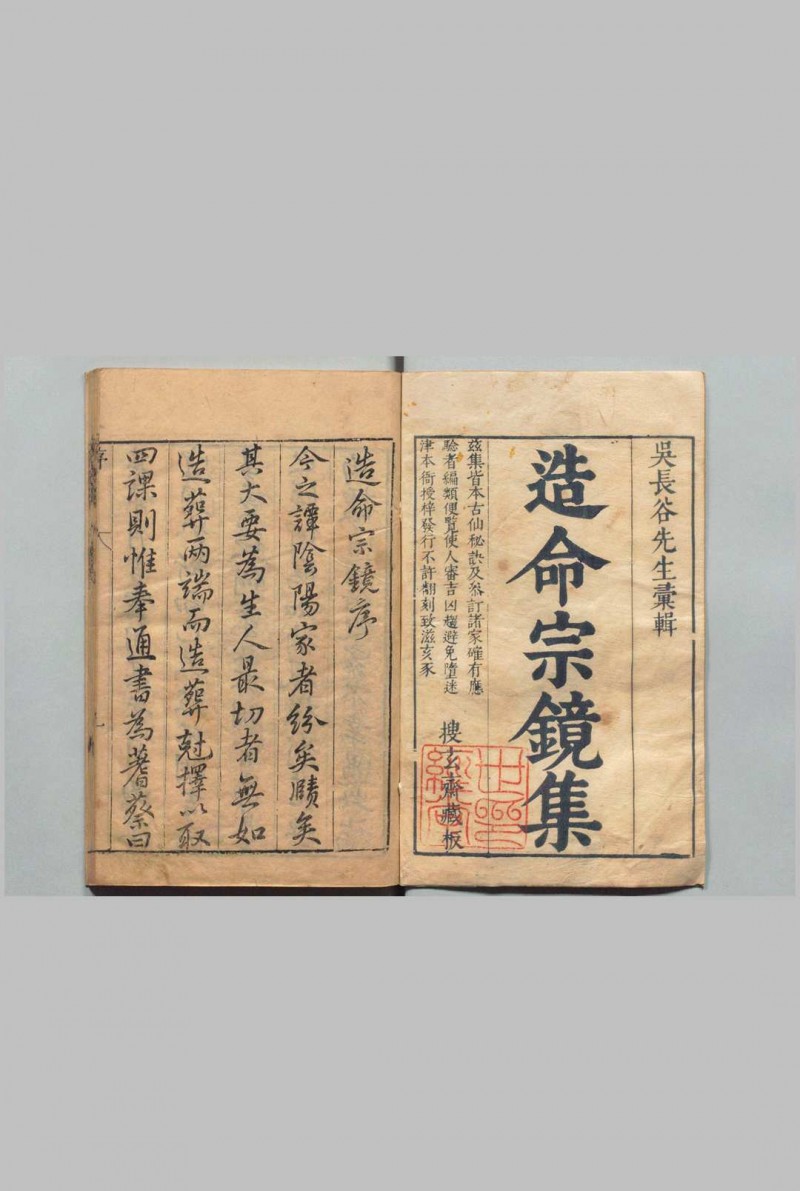 吳長谷先生彙輯
造命宗鏡集
茲集皆本古仙秘訣及叅訂諸家確有應
驗者編類便覧使人審吉凶趨避免墮迷
津本衙授梓發行不許翻刻致滋亥豕
搜玄齋藏板
造命宗鏡序
今之譚陰陽家者紛矣賾矣
其大要為生人最切者無如
造葬两端而造葬尅擇以取
四課則惟奉通書為蓍蔡曰
序
一